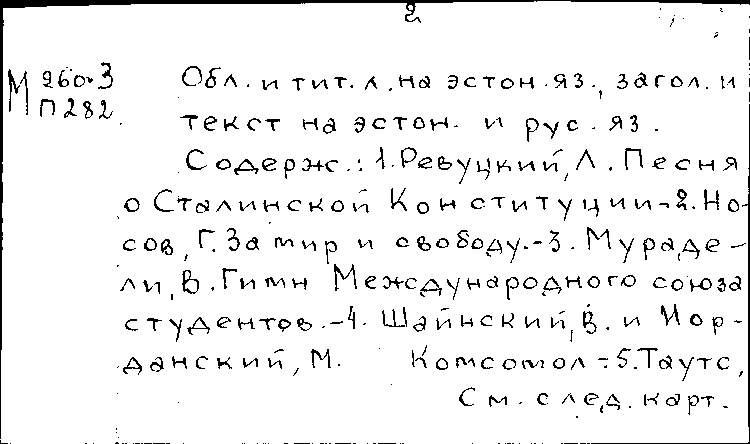 2
М 260.3 Обл. и тит. л. на эстон. яз., загол. и
П 282 текст на эстон. и рус. яз.
Содерж.: 1. Ревуцкий, Л. Песня
о Сталинской Конституции.-2. Но-
сов, Г. За мир и свободу.-3. Мураде-
ли, В. Гимн Международного союза
студентов.-4. Шаинский, В. и Иор-
данский, М. Комсомол.-5. Таутс,
См. след. карт.